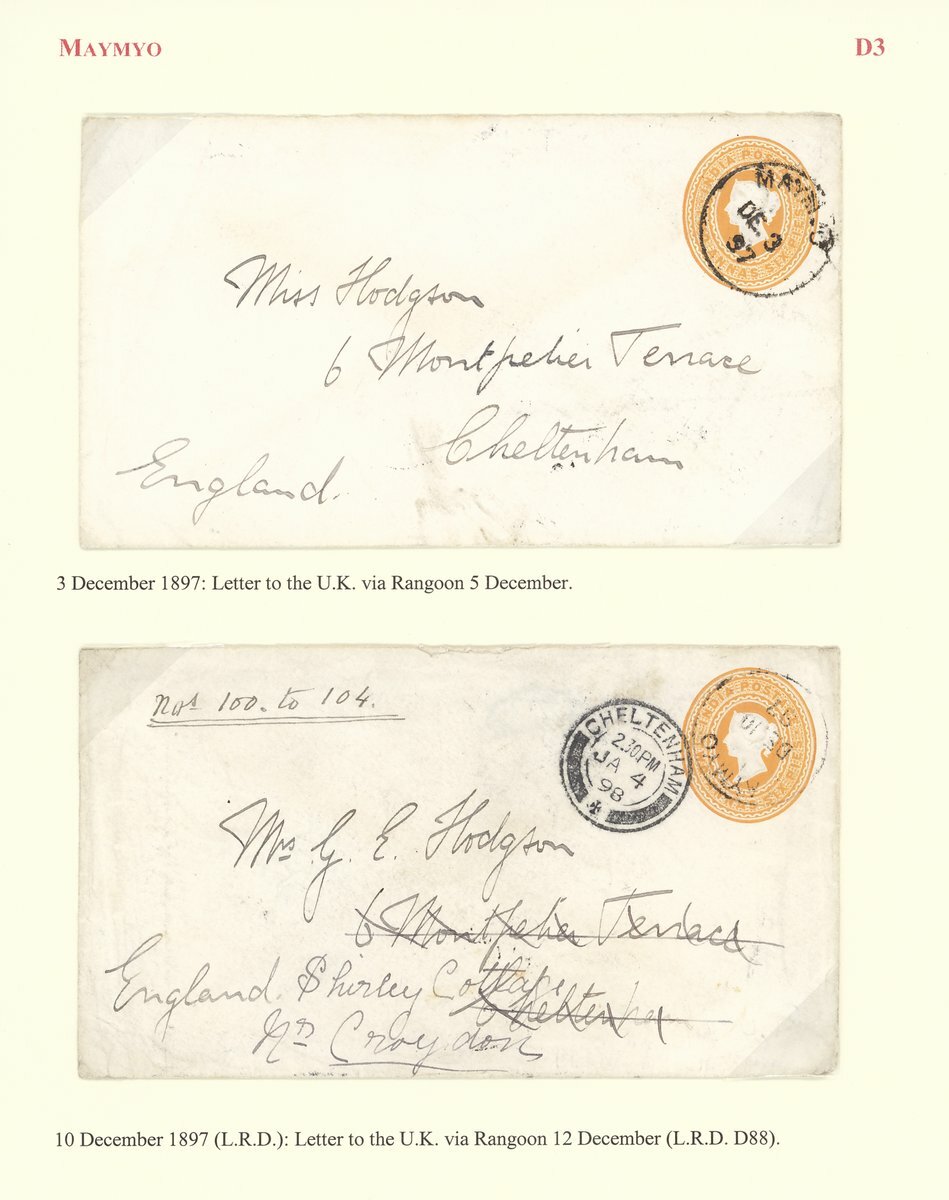 MAYMYO
D3
MAYMYO
DE. 3
97
Miss Hodgson
6 Montpelier Terrace
Cheltenham
England.
3 December 1897: Letter to the U.K. via Rangoon 5 December.
Nos 100. to 104.
CHELTENHAM
2.30PM
JA 4
98
INDIA POSTAGE
AYMYO
DE 10
97
Mrs G. E. Hodgson
6 Montpelier Terrace
Cheltenham
England. Shirley Cottage
Nr Croydon
10 December 1897 (L.R.D.): Letter to the U.K. via Rangoon 12 December (L.R.D. D88).